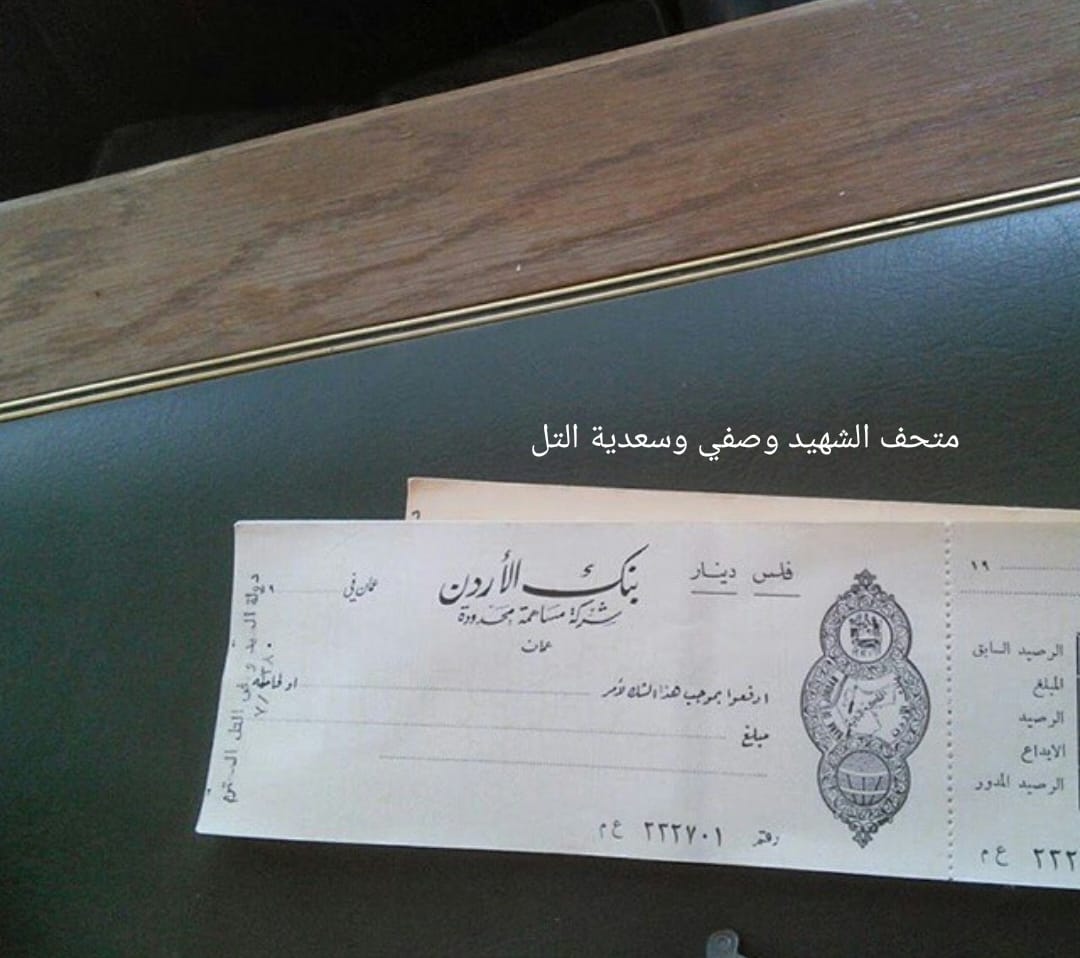 متحف الشهيد وصفي وسعدية التل
فلس دينار
بنك الأردن
شركة مساهمة محدودة
عمان
عمان في
ادفعوا بموجب هذا الشك لأمر
او لحامله
مبلغ
رقم ٢٢٢٧٠١ ع م
دولة السيد وصفي التل المحترم
١٩
الرصيد السابق
المبلغ
الرصيد
الايداع
الرصيد المدور
ع م